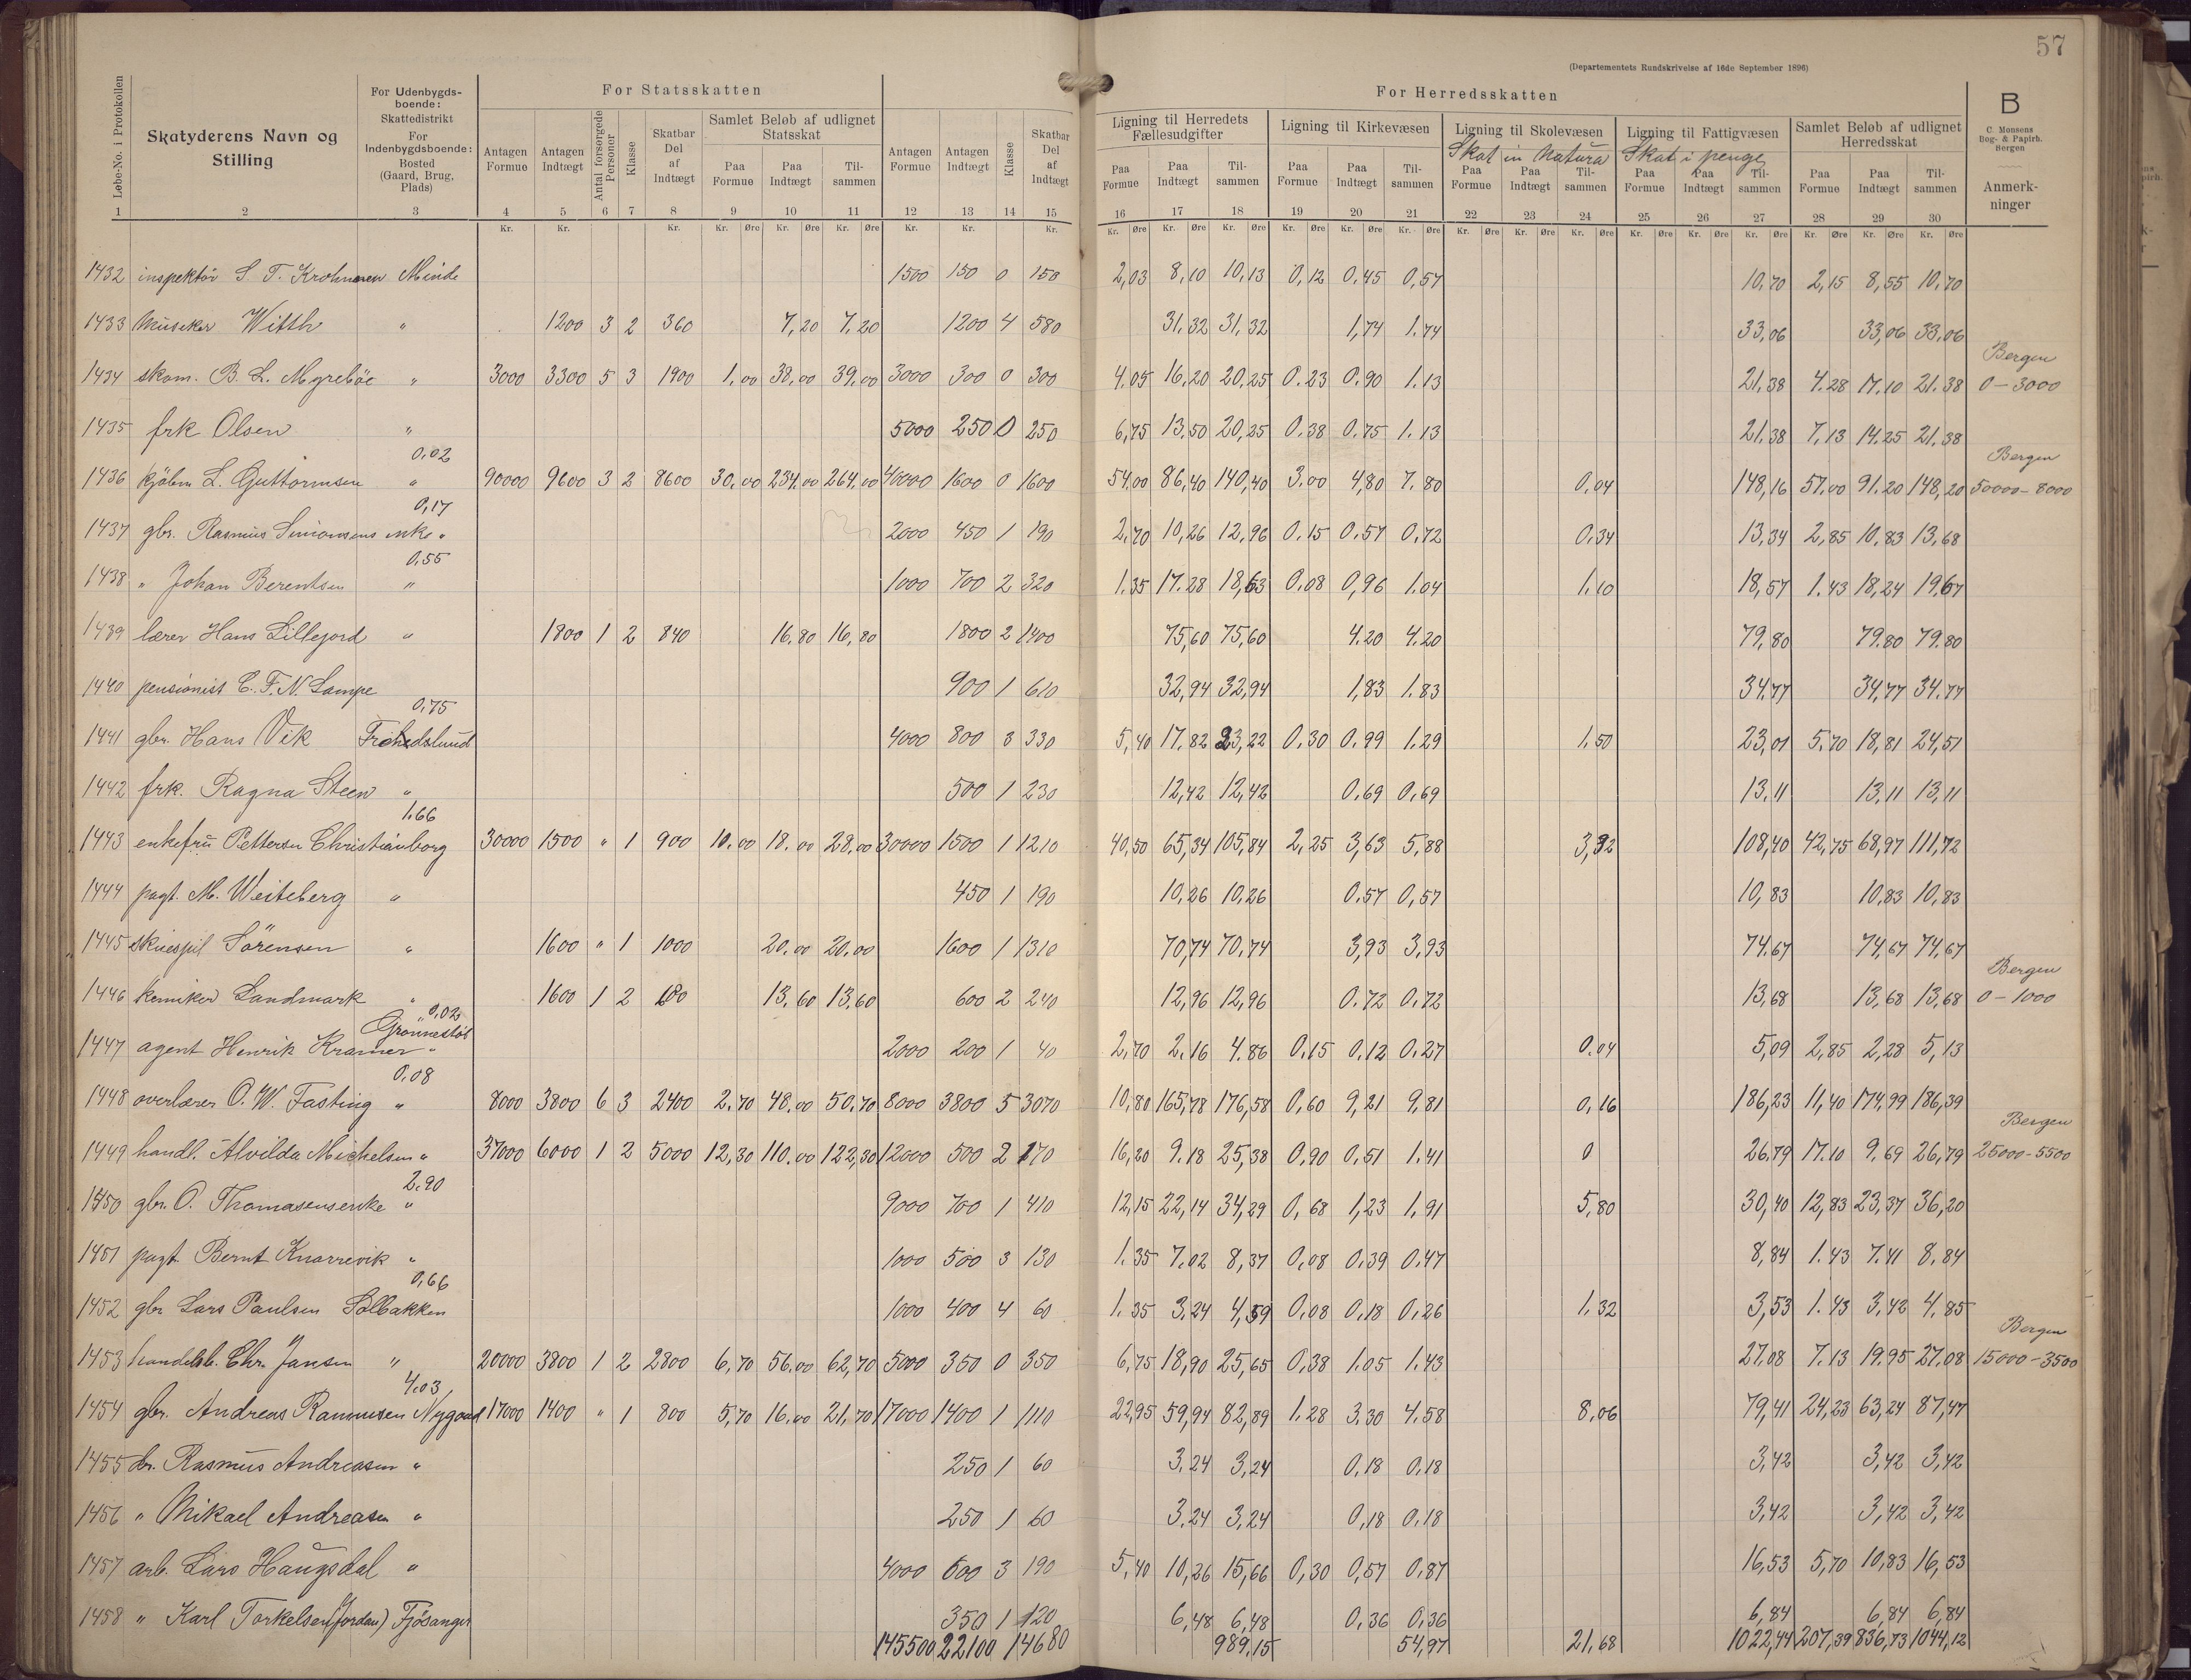 57
(Departementets Rundskrivelse af 16de September 1896)
For Statsskatten
For Herredsskatten
B
C. Monsens Bog- & Papirh. Bergen
Løbe-No. i Protokollen
Skatyderens Navn og Stilling
For Udenbygdsboende: Skattedistrikt For Indenbygdsboende: Bosted (Gaard, Brug, Plads)
Antagen Formue
Antagen Indtægt
Antal forsørgede Personer
Klasse
Skatbar Del af Indtægt
Samlet Beløb af udlignet Statsskat
Paa Formue
Paa Indtægt
Tilsammen
Antagen Formue
Antagen Indtægt
Klasse
Skatbar Del af Indtægt
Ligning til Herredets Fællesudgifter
Paa Formue Paa Indtægt Tilsammen
Ligning til Kirkevæsen
Paa Formue Paa Indtægt Tilsammen
Ligning til Skolevæsen
Skat in Natura
Paa Formue Paa Indtægt Tilsammen
Ligning til Fattigvæsen
Skat i penge
Paa Formue Paa Indtægt Tilsammen
Samlet Beløb af udlignet Herredsskat
Paa Formue Paa Indtægt Tilsammen
Anmerkninger
1 2 3 4 5 6 7 8 9 10 11 12 13 14 15 16 17 18 19 20 21 22 23 24 25 26 27 28 29 30
Kr. Kr. Kr. Kr. Øre Kr. Øre Kr. Øre Kr. Kr. Kr. Kr. Øre Kr. Øre Kr. Øre Kr. Øre Kr. Øre Kr. Øre Kr. Øre Kr. Øre Kr. Øre Kr. Øre Kr. Øre Kr. Øre Kr. Øre Kr. Øre Kr. Øre
1432 inspektör S. T. Minde 1500 150 0 150 2,03 8,10 10,13 0,12 0,45 0,57 10,70 2,15 8,55 10,70
1433 Musiker Witth " 1200 3 2 360 7,20 7,20 1200 4 580 31,32 31,32 1,74 1,74 33,06 33,06 33,06
Bergen
1434 skom. B. L. Myreböe " 3000 3300 5 3 1900 1,00 38,00 39,00 3000 300 0 300 4,05 16,20 20,25 0.23 0,90 1.13 21,38 4.28 17,10 21,38 0-3000
1435 frk Olsen " 5000 250 0 250 6,75 13,50 20,25 0.38 0.75 1.13 21,38 7,13 14,25 21,38
0,02 Bergen
1436 kjöbm L. Guttormsen " 90000 9600 3 2 8600 30,00 234,00 264,00 40000 1600 0 1600 54,00 86,40 140,40 3.00 4,80 7.80 0,04 148,16 57,00 91.20 148,20 50000-8000
0,17
1437 gbr. Rasmus Simonsens enke " 2000 450 1 190 2,70 10,26 12,96 0.15 0.57 0,72 0,34 13,34 2,85 10,83 13,68
0,55
1438 " Johan Berentsen " 1000 700 2 320 1.35 17.28 18,63 0.08 0,96 1.04 1,10 18,57 1.43 18,24 19,67
1439 lærer Hans Lillejord " 1800 1 2 840 16.80 16,80 1800 2 1400 75,60 75,60 4.20 4.20 79,80 79.80 79.80
1440 pensionist C. F. N. Lampe 900 1 610 32,94 32,94 1,83 1.83 34,77 34,77 34.77
0,75
1441 gbr. Hans Vik Fredslund 4000 800 3 330 5,40 17.82 23,22 0.30 0.99 1.29 1,50 23,01 5.70 18,81 24,51
1442 frk. Ragna Steen " 500 1 230 12,42 12,42 0.69 0,69 13,11 13,11 13,11
1,66
1443 enkefru Pettersen Christianborg 30000 1500 " 1 900 10,00 18,00 28,00 30000 1500 1 1210 40,50 65,34 105,84 2,25 3,63 5,88 3,32 108,40 42,75 68,97 111,72
1444 pagt. M. Weiteberg " 450 1 190 10,26 10,26 0.57 0,57 10,83 10,83 10,83
1445 skuespil Sörensen " 1600 " 1 1000 20,00 20,00 1600 1 1310 70,74 70.74 3,93 3,93 74.67 74,67 74,67
Bergen
1446 kemiker Landmark " 1600 1 2 680 13,60 13.60 600 2 240 12,96 12,96 0.72 0.72 13,68 13,68 13,68 0-1000
0,02
Grönnestöl
1447 agent Henrik Kramer " 2000 200 1 40 2,70 2,16 4.86 0,15 0.12 0,27 0,04 5,09 2,85 2,28 5,13
0,08
1448 overlærer O. W. Fasting " 8000 3800 6 3 2400 2,70 48,00 50,70 8000 3800 5 3070 10,80 165,78 176,58 0,60 9,21 9,81 0,16 186,23 11,40 174,99 186,39
Bergen
1449 handl. Alvilda Michelsen " 37000 6000 1 2 5000 12,30 110,00 122,30 12000 500 2 170 16,20 9.18 25,38 0,90 0,51 1,41 0 26,79 17.10 9,69 26,79 25000-5500
2.90
1450 gbr. O. Thomasens enke " 9000 700 1 410 12,15 22,14 34,29 0,68 1,23 1,91 5,80 30,40 12,83 23,37 36,20
1451 pagt. Bernt Knarrevik " 1000 500 3 130 1.35 7.02 8,37 0,08 0,39 0,47 8,84 1.43 7.41 8,84
0,66
1452 gbr Lars Paulsen Solbakken 1000 400 4 60 1.35 3,24 4,59 0,08 0.18 0,26 1,32 3,53 1.43 3,42 4,85
Bergen
1453 Chr. Jansen " 20000 3800 1 2 2800 6,70 56,00 62,70 5000 350 0 350 6,75 18,90 25,65 0,38 1.05 1,43 27,08 7.13 19,95 27,08 15000-3500
4,03
1454 gbr. Andreas Rasmusen Nygaard 17000 1400 " 1 800 5,70 16,00 21,70 17000 1400 1 1110 22,95 59,94 82,89 1.28 3.30 4,58 8,06 79,41 24,23 63,24 87,47
1455 dr. Rasmus Andreasen " 250 1 60 3,24 3,24 0,18 0,18 3,42 3,42 3,42
1456 " Mikael Andreasen " 250 1 60 3.24 3,24 0,18 0,18 3,42 3,42 3,42
1457 arb. Lars Haugsdal " 4000 600 3 190 5,40 10,26 15,66 0,30 0,57 0,87 16,53 5,70 10,83 16,53
1458 " Karl Torkelsen (Jordan) Fjösanger 350 1 120 6,48 6,48 0,36 0,36 6,84 6,84 6,84
145500 22100 14680 989,15 54,97 21,68 1022,44 207,39 836,73 1044,12